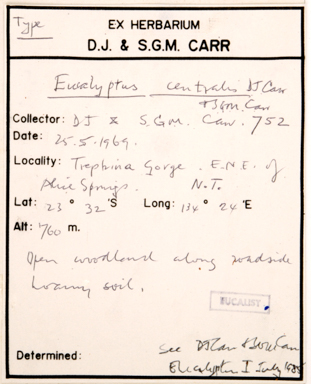 Type
EX HERBARIUM
D.J. & S.G.M. CARR
Eucalyptus centralis DJ Carr
& SGM Carr
Collector: DJ & S.G.M. Carr. 752
Date: 25.5.1969.
Locality: Trephina Gorge. E.N.E. of
Alice Springs. N.T.
Lat: 23° 32'S Long: 134° 24'E
Alt: 760 m.
Open woodland along roadside
loamy soil.
EUCALIST
Determined: see DJCarr & SGMCarr
Eucalyptus I July 1985